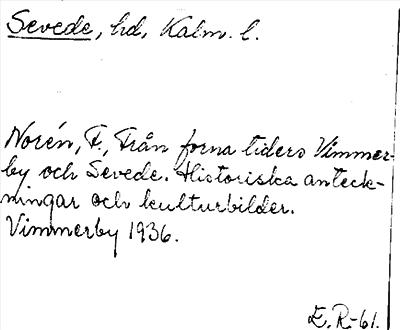 Sevede, hd, Kalm. l.
Norén, F., Från forna tiders Vimmer-
by och Sevede. Historiska anteck-
ningar och kulturbilder.
Vimmerby 1936.
E. R-61.